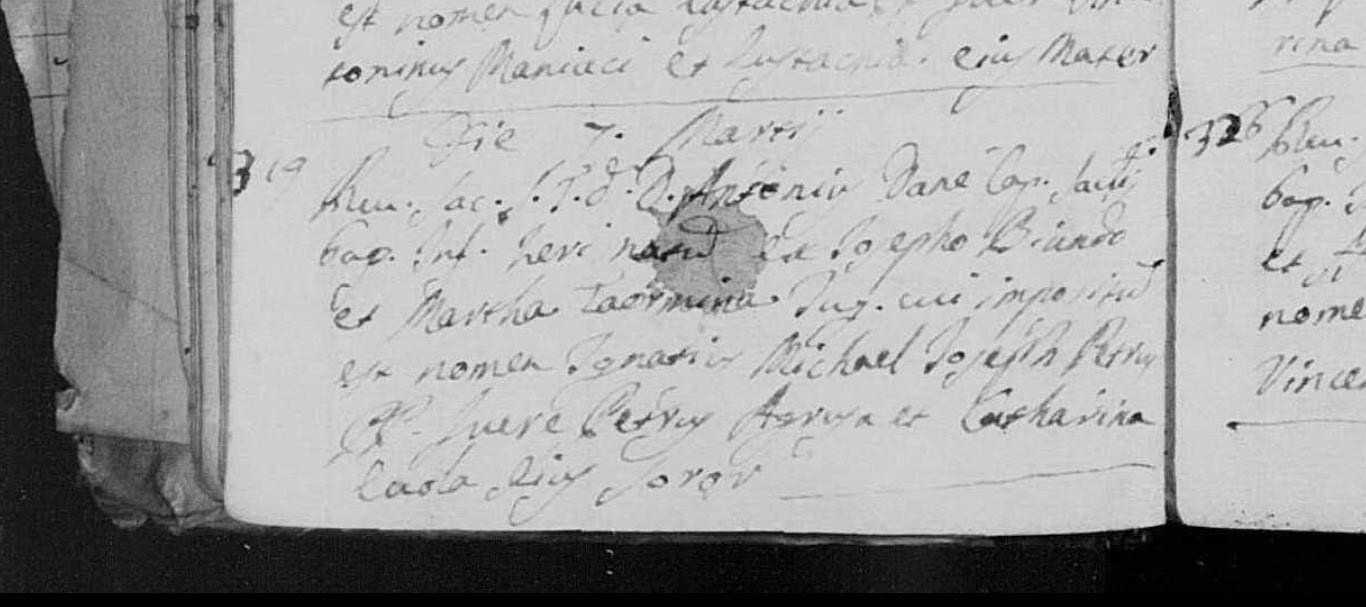 est nomen
toninus Maniaci et Eustachia ejus Mater
Die 7. Martij
319
Reu. Sac. S. T. D. D. Antonius Dane Cap. Sacti
bap. Inf. heri natu ex Josepho Biundo
et Martha Taormina Jug. cui impositu
est nomen Ignatius Michael Joseph Petrus
PP. fuere Petrus et Catharina
Paola ejus Soror
326 Reu.
bap.
et
nome
Vince
rina